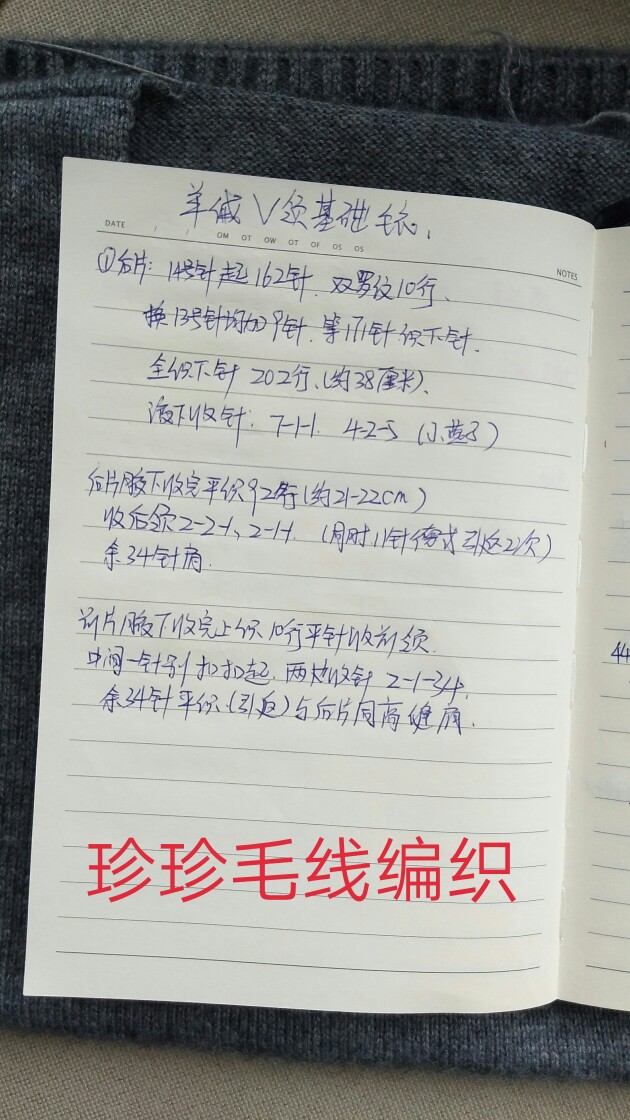 羊绒V领基础毛衣.
DATE / /
OM OT OW OT OF OS OS
NOTES
①后片: 14号针起162针. 双罗纹10行、
换13号针均加9针. 等171针织下针.
全织下针 202行.(约38厘米).
腋下收针: 7-1-1. 4-2-5 (小燕子)
后片腋下收完平织92行(约21-22cm)
收后领2-2-1、2-1-1. (同时11针 引返2次)
余34针肩.
前片腋下收完上织10行平针收前领.
中间一针别扣扣起. 两边收针 2-1-34.
余34针平织(引返)与后片同高缝肩.
44
珍珍毛线编织